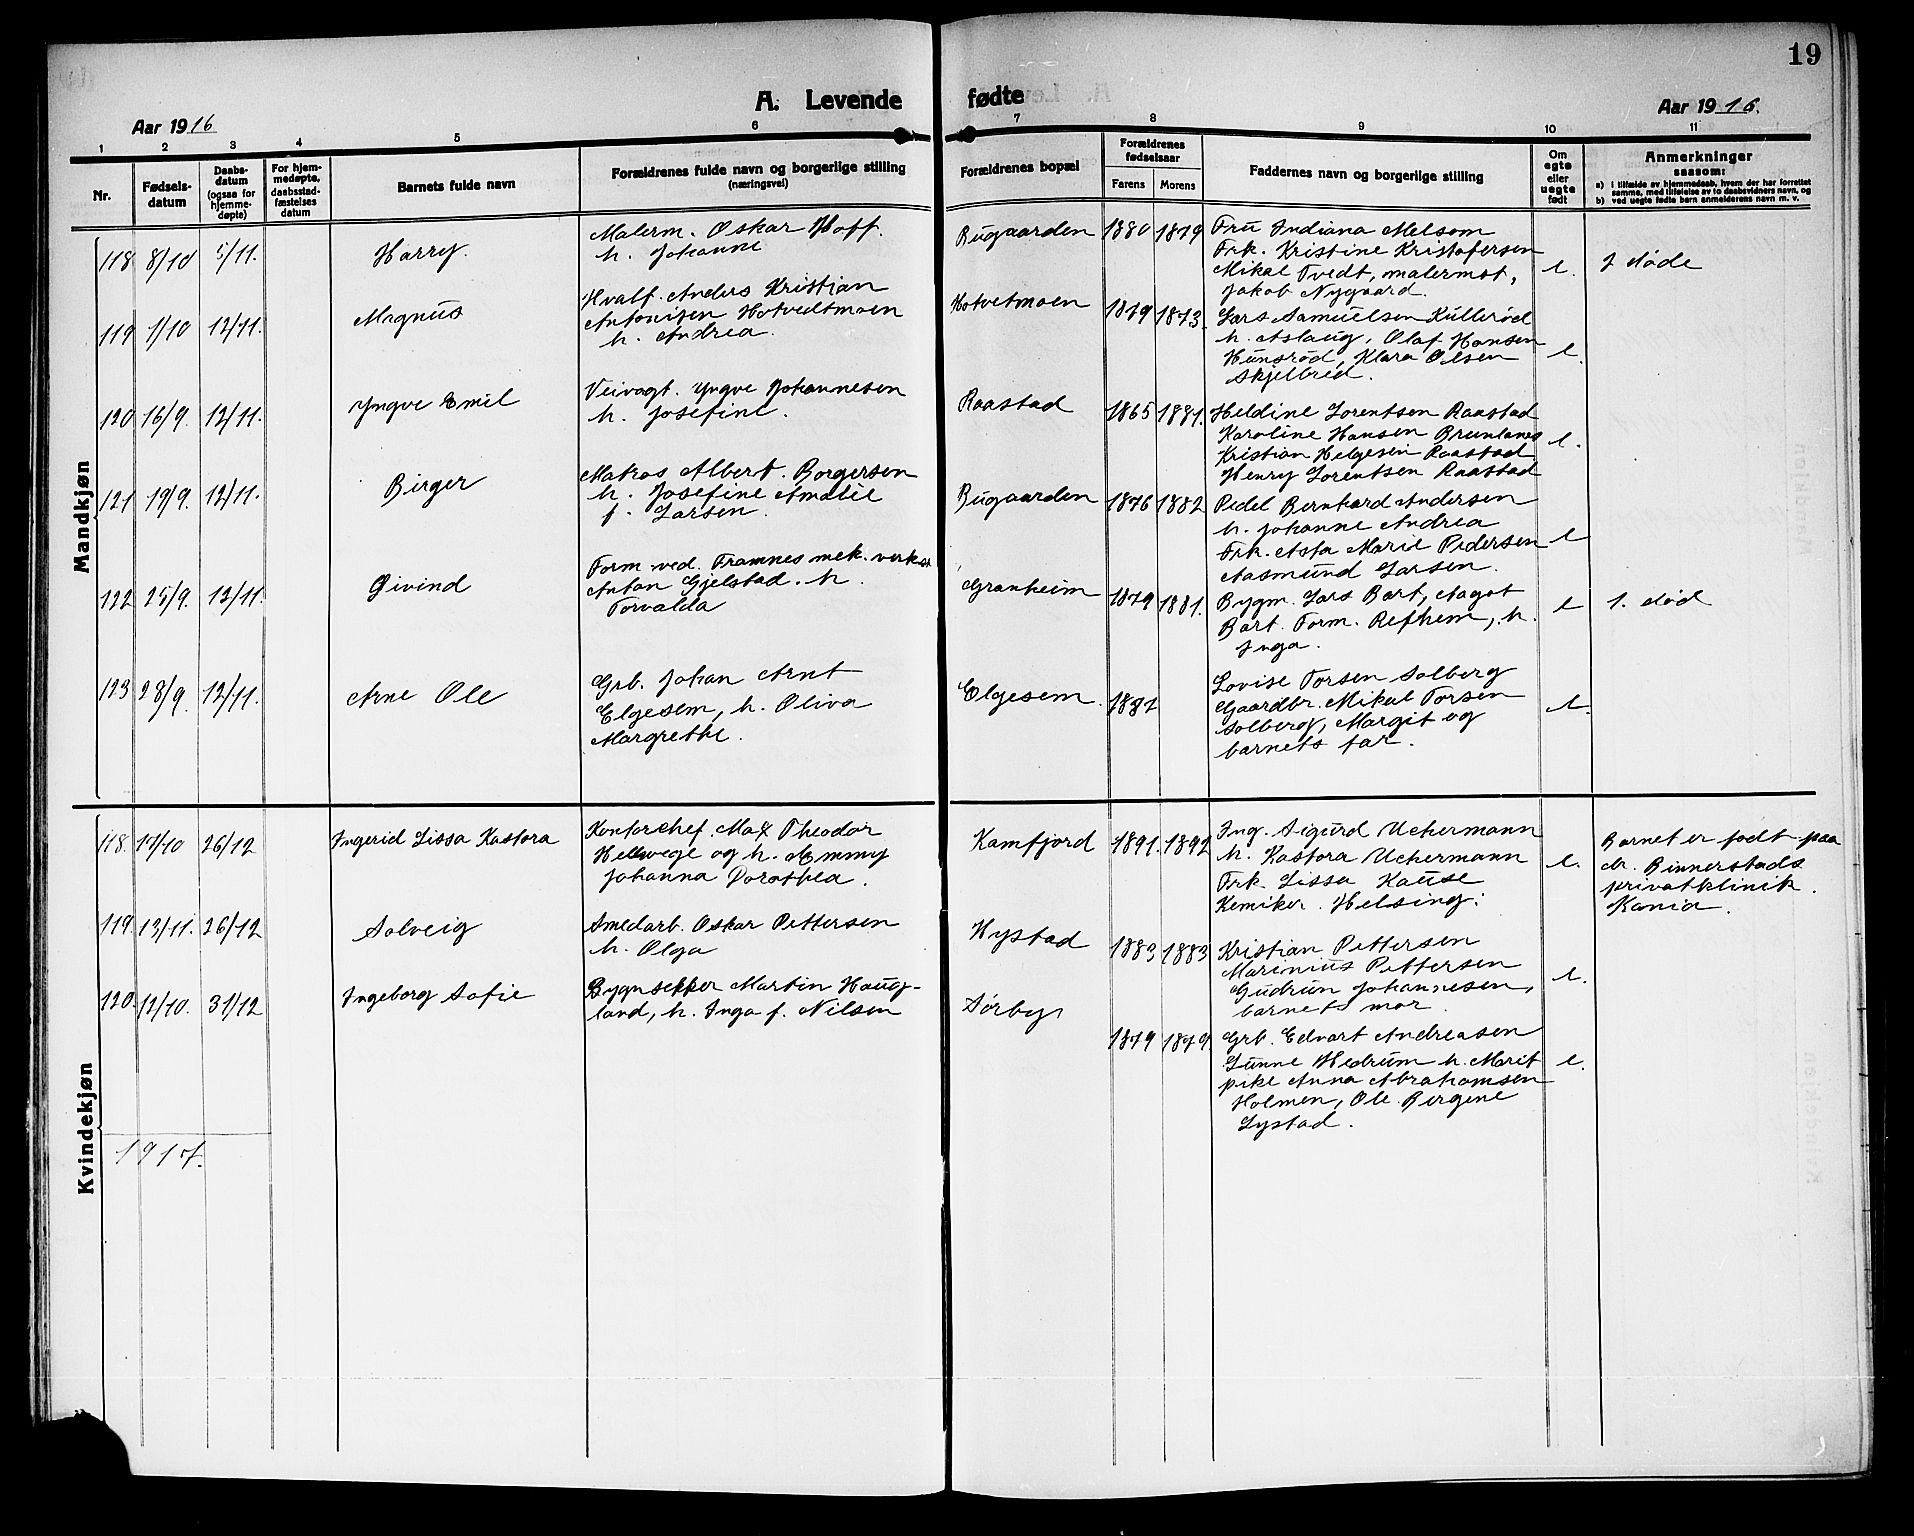 19
A. Levende fødte
Aar 1916
Aar 1916.
1 2 3 4 5 6 7 8 9 10 11
Nr.
Fødsels-
datum
Daabs-
datum
(ogsaa for
hjemme-
døpte)
For hjem-
medøpte,
daabsstad-
fæstelses
datum
Barnets fulde navn
Forældrenes fulde navn og borgerlige stilling
(næringsvei)
Forældrenes bopæl
Forældrenes
fødselsaar
Farens
Morens
Faddernes navn og borgerlige stilling
Om
egte
eller
uegte
født
Anmerkninger
saasom:
a) i tilfælde av hjemmedaab, hvem der har forrettet
samme, med tilføielse av to daabsvidners navn, og
b) ved uegte fødte barn anmelderens navn m. v.
Mandkjøn
118 8/10 5/11. Harry.
Malerm. Oskar Hoff.
h. Johanne
Bugaarden 1880 1879
Fru Indiana Melsom
Frk. Kristine Kristofersen
Mikal Tvedt, malermst,
Jakob Nygaard.
e. 2 døde
119 1/10 12/11. Magnus
Hvalf. Anders Kristian
Antonisen Hotvedtmoen
h. Andrea.
Hotvetmoen 1879 1873.
Lars Samuelsen Kullerød
h. Aslaug, Olaf Hansen
Hunsrød, Klara Olsen
Skjelbred.
e.
120 16/9. 12/11. Yngve Emil
Veivogt. Yngve Johannesen
h. Josefine.
Raastad 1865 1881.
Heldine Lorentsen Raastad
Karoline Hansen Brunlanes
Kristian Helgesen Raastad
Henry Lorentsen Raastad
e.
121 19/9. 12/11. Birger
Matros Albert Borgersen
h. Josefine Amalie
f. Larsen.
Bugaarden 1876 1882
Pedel Bernhard Andersen
h. Johanne Andrea
Frk. Asta Marie Pedersen
Aasmund Larsen.
e
122 25/9. 12/11. Øivind
Form. ved. Framnes mek. verkst
Anton Gjelstad. h.
Torvalda
Granheim 1879 1881.
Bygm. Lars Bart, Aagot
Bart. Form. Refhem, h.
Inga.
e 1. død
123 28/9. 12/11. Arne Ole
Grb. Johan Arnt
Elgesem, h. Oliva
Margrethe.
Elgesem. 1887
Lovise Torsen Solberg
Gaardbr. Mikal Torsen
Solberg, Margit og
barnets far.
e.
Kvindekjøn
118. 17/10 26/12 Ingerid Lissa Kastora
Kontorchef. Max Theodor
Hellwege og h. Emmy
Johanna Dorothea.
Kamfjord 1891. 1892
Ing. Sigurd Uchermann
h. Kastora Uchermann
Frk. Lissa Kause
Kemiker. Helsing.
e.
Barnet er født paa
dr. Binnerstads
privatklinik.
Kania.
119. 13/11. 26/12 Solveig
Smedarb. Oskar Pettersen
h. Olga
Hystad 1883 1883
Kristian Pettersen
Marinius Pettersen
Gudrun Johannesen,
barnets mor.
e.
120. 12/10. 31/12 Ingeborg Sofie
Bygnsekker Martin Haug-
land, h. Inga f. Nilsen
Sørby 1879 1879.
Grb. Edvart Andreasen
Lunne Hedrum h. Marit
pike Anna Abrahamsen
Holmen, Ole Bergene
Lystad.
e.
1917.